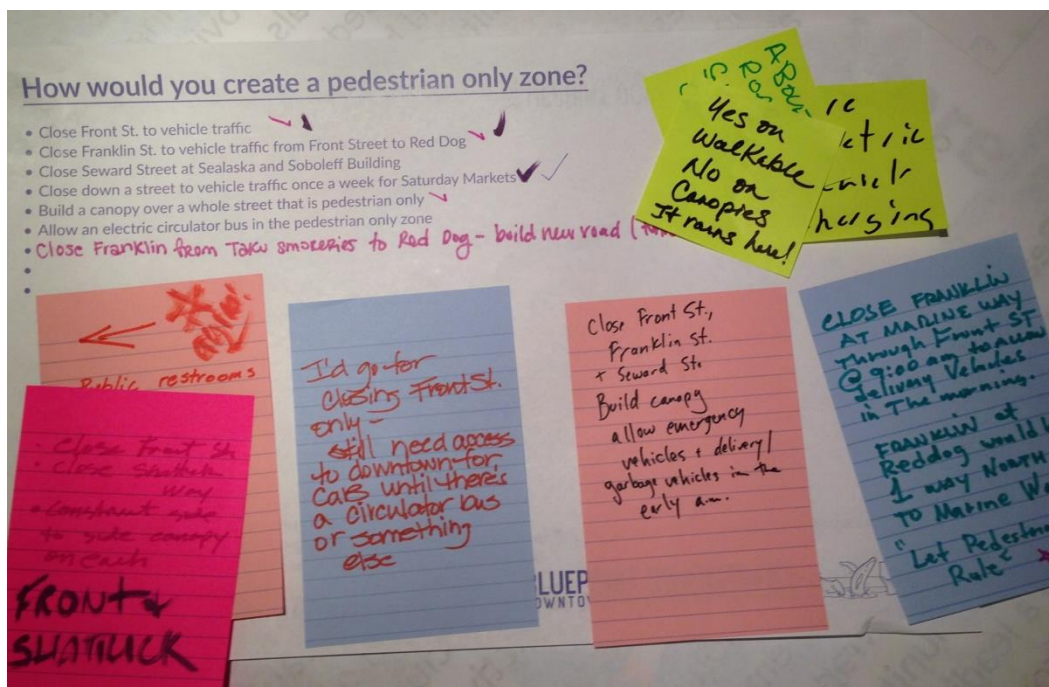 How would you create a pedestrian only zone?
• Close Front St. to vehicle traffic
• Close Franklin St. to vehicle traffic from Front Street to Red Dog
• Close Seward Street at Sealaska and Soboleff Building
• Close down a street to vehicle traffic once a week for Saturday Markets
• Build a canopy over a whole street that is pedestrian only
• Allow an electric circulator bus in the pedestrian only zone
• Close Franklin from Taku smokeries to Red Dog - build new road
Yes on
Walkable
No on
Canopies
It rains here!
Public restrooms
• Close Front St
• Close Shattuck
Way
• Construct side
to side canopy
on each
FRONT &
SHATTUCK
I'd go for
closing Front St.
only -
still need access
to downtown for
cars until there's
a circulator bus
or something
else
Close Front St.,
Franklin St.
+ Seward St.
Build canopy
allow emergency
vehicles + delivery/
garbage vehicles in the
early a.m.
CLOSE FRANKLIN
AT MARINE WAY
through Front ST
@ 9:00 am to Allow
delivery Vehicles
in The morning.
FRANKLIN at
Reddog would
1 way NORTH
TO Marine
"Let
Rule"